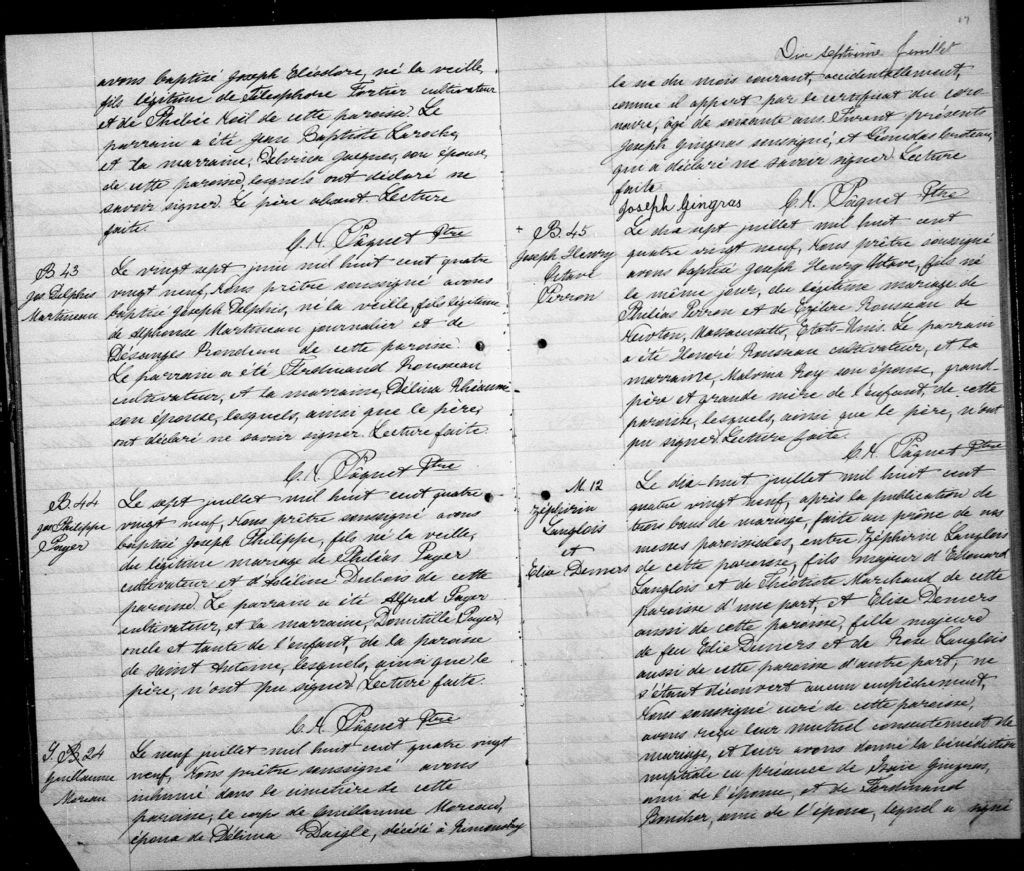 avons baptisé Joseph Eléodore, né la veille,
fils légitime de Télesphore Fortier cultivateur
et de Phébée de cette paroisse. Le
parrain a été Jean Baptiste Laroche,
et la marraine, Delvina Jacques, son épouse,
de cette paroisse, lesquels ont déclaré ne
savoir signer. Le père absent. Lecture
faite.
C. H. Pâquet Ptre
B 43
Jos Delphis
Martineau
Le vingt sept juin mil huit cent quatre
vingt neuf, Nous prêtre soussigné avons
baptisé Joseph Delphis, né la veille, fils légitime
de Alphonse Martineau journalier et de
Désanges Rondeau de cette paroisse
Le parrain a été Ferdinand Rousseau
cultivateur, et la marraine, Délina Rhéaume
son épouse, lesquels, ainsi que le père,
ont déclaré ne savoir signer. Lecture faite.
C. H. Pâquet Ptre
B. 44
Jos Philippe
Payer
Le sept juillet mil huit cent quatre
vingt neuf, Nous prêtre soussigné avons
baptisé Joseph Philippe, fils né la veille,
du légitime mariage de Philéas Payer
cultivateur et d'Adéline Dubois de cette
paroisse. Le parrain a été Alfred Payer
cultivateur, et la marraine, Domitille Payer,
oncle et tante de l'enfant, de la paroisse
de Saint Antoine, lesquels, ainsi que le
père, n'ont pu signer. Lecture faite.
C. H. Pâquet Ptre
S. B. 24
Guillaume
Moreau
Le neuf juillet mil huit cent quatre vingt
neuf, Nous prêtre soussigné avons
inhumé dans le cimetière de cette
paroisse, le corps de Guillaume Moreau,
époux de Délima Daigle, décédé à Rimouski
17
Dix septième feuillet
le six du mois courant, accidentallement,
comme il appert par le certificat du coro-
naire, âgé de soixante ans. Furent présents
Joseph Gingras soussigné, et Léonidas Croteau,
qui a déclaré ne savoir signer. Lecture
faite
Joseph Gingras C. H. Pâquet Ptre
+ B. 45
Joseph Henry
Octave
Perron
Le dix sept juillet mil huit cent
quatre vingt neuf, Nous prêtre soussigné
avons baptisé Joseph Henry Octave, fils né
le même jour, du légitime mariage de
Philéas Perron et de Exzère Rousseau de
Newton, Massacusette, Etats-Unis. Le parrain
a été Honoré Rousseau cultivateur, et la
marraine, Malvina Roy son épouse, grand-
père et grande mère de l'enfant, de cette
paroisse, lesquels, ainsi que le père, n'ont
pu signer. Lecture faite.
C. H. Pâquet Ptre
M. 12
Zéphirin
Langlois
et
Elise Demers
Le dix-huit juillet mil huit cent
quatre vingt neuf, après la publication de
trois bans de mariage, faite au prône de nos
messes paroissiales, entre Zéphirin Langlois
de cette paroisse, fils majeur d'Edouard
Langlois et de Théotiste Marchand de cette
paroisse d'une part, et Elise Demers
aussi de cette paroisse, fille majeure
de feu Elie Demers et de Rose Langlois
aussi de cette paroisse d'autre part, ne
s'étant découvert aucun empêchement,
Nous soussigné curé de cette paroisse,
avons reçu leur mutuel consentement de
mariage, et leur avons donné la bénédiction
nuptiale en présence de Isaïe Gingras,
ami de l'époux, et de Ferdinand
Boucher, ami de l'épouse, lequel a signé